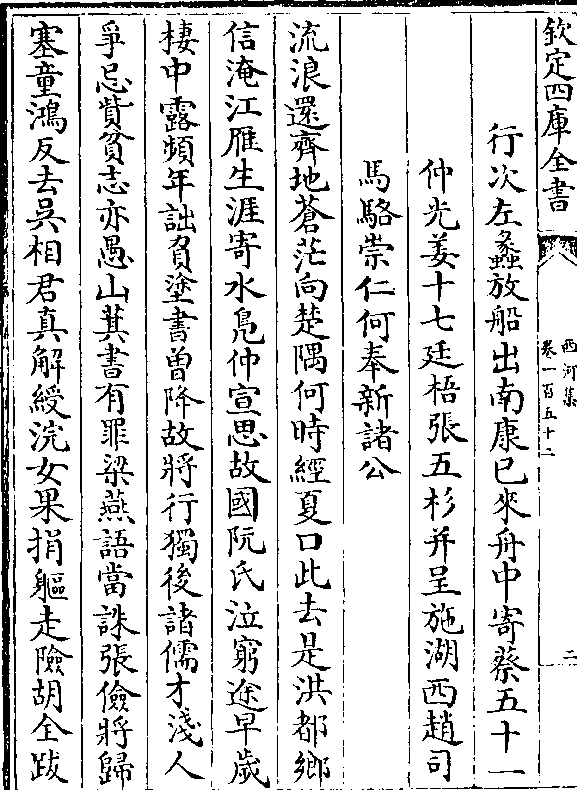 欽定四庫全書
西河集
卷一百五十二
二
行次左蠡放船出南康已來舟中寄蔡五十一
仲光姜十七廷梧張五杉并呈施湖西趙司
馬駱崇仁何奉新諸公
流浪還齊地蒼茫向楚隅何時經夏口此去是洪都鄉
信淹江雁生涯寄水鳧仲宣思故國阮氏泣窮途早歲
棲中露頻年詘負塗書曽降故將行獨後諸儒才淺人
爭忌貲貧志亦愚山萁書有罪梁燕語當誅張儉將歸
塞童鴻反去吳相君真解綬浣女果捐軀走險胡全跋